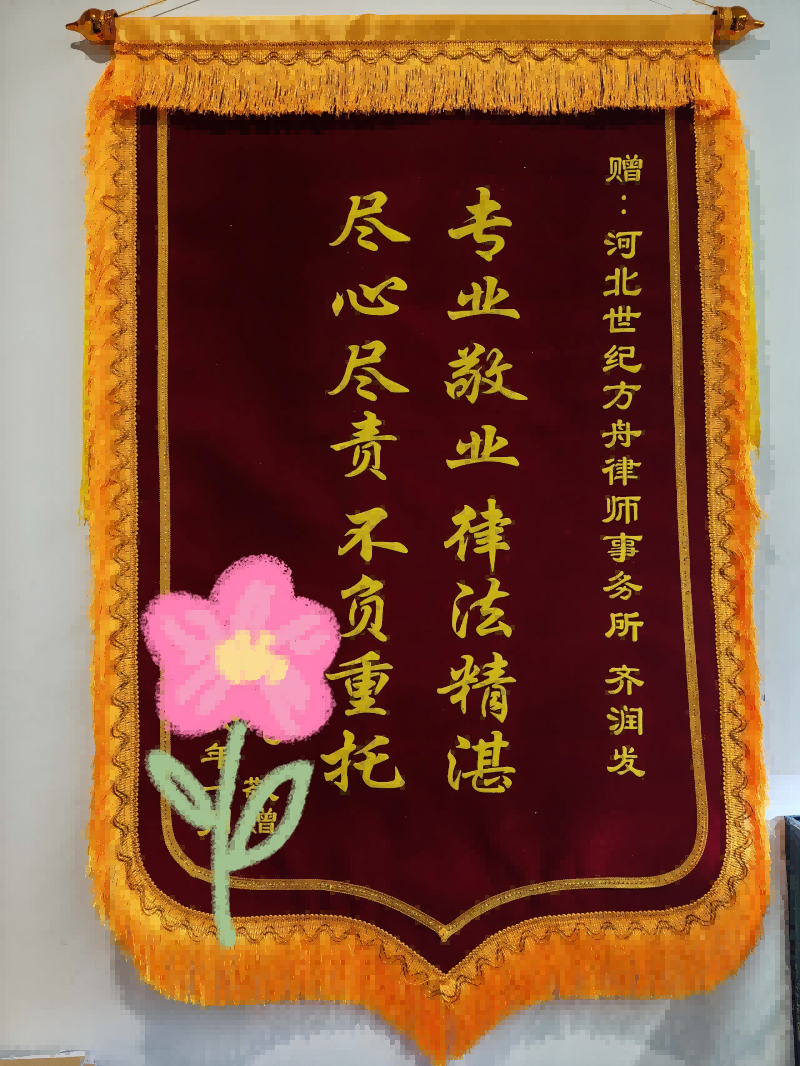 赠：河北世纪方舟律师事务所 齐润发
专业敬业律法精湛
尽心尽责不负重托
敬赠
年